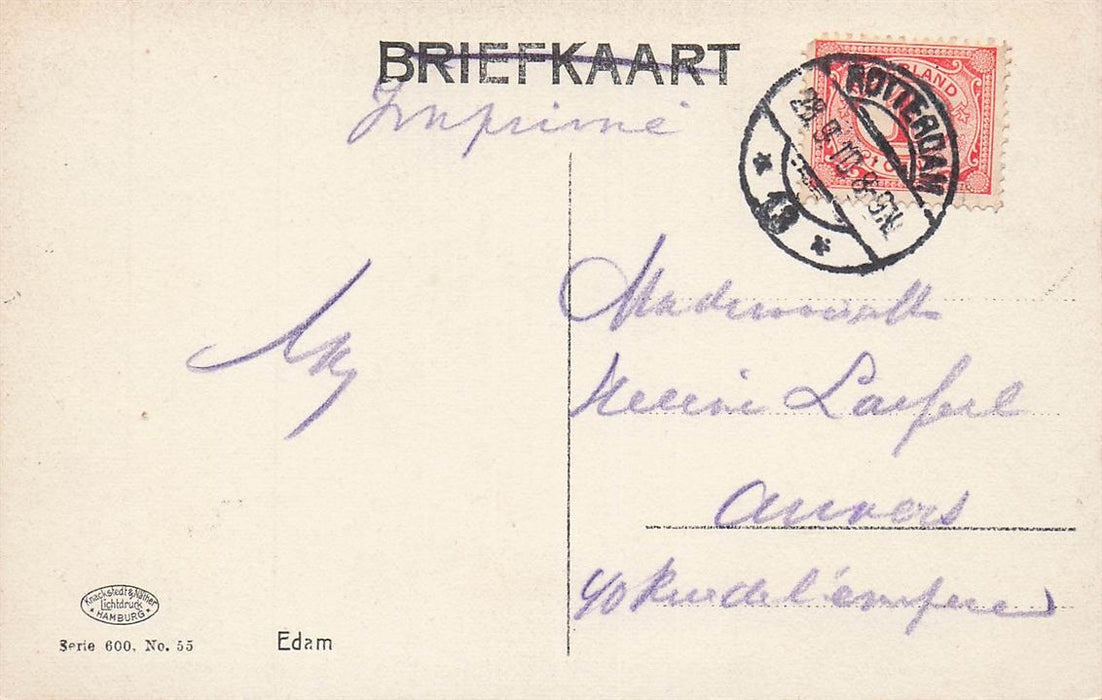 BRIEFKAART
Imprimé
NEDERLAND
ROTTERDAM
29.9.10.8-9N
13
Mademoiselle
Anvers
40 Rue de l'empereur
Knackstedt & Näther
Lichtdruck
HAMBURG
Serie 600, No. 55
Edam